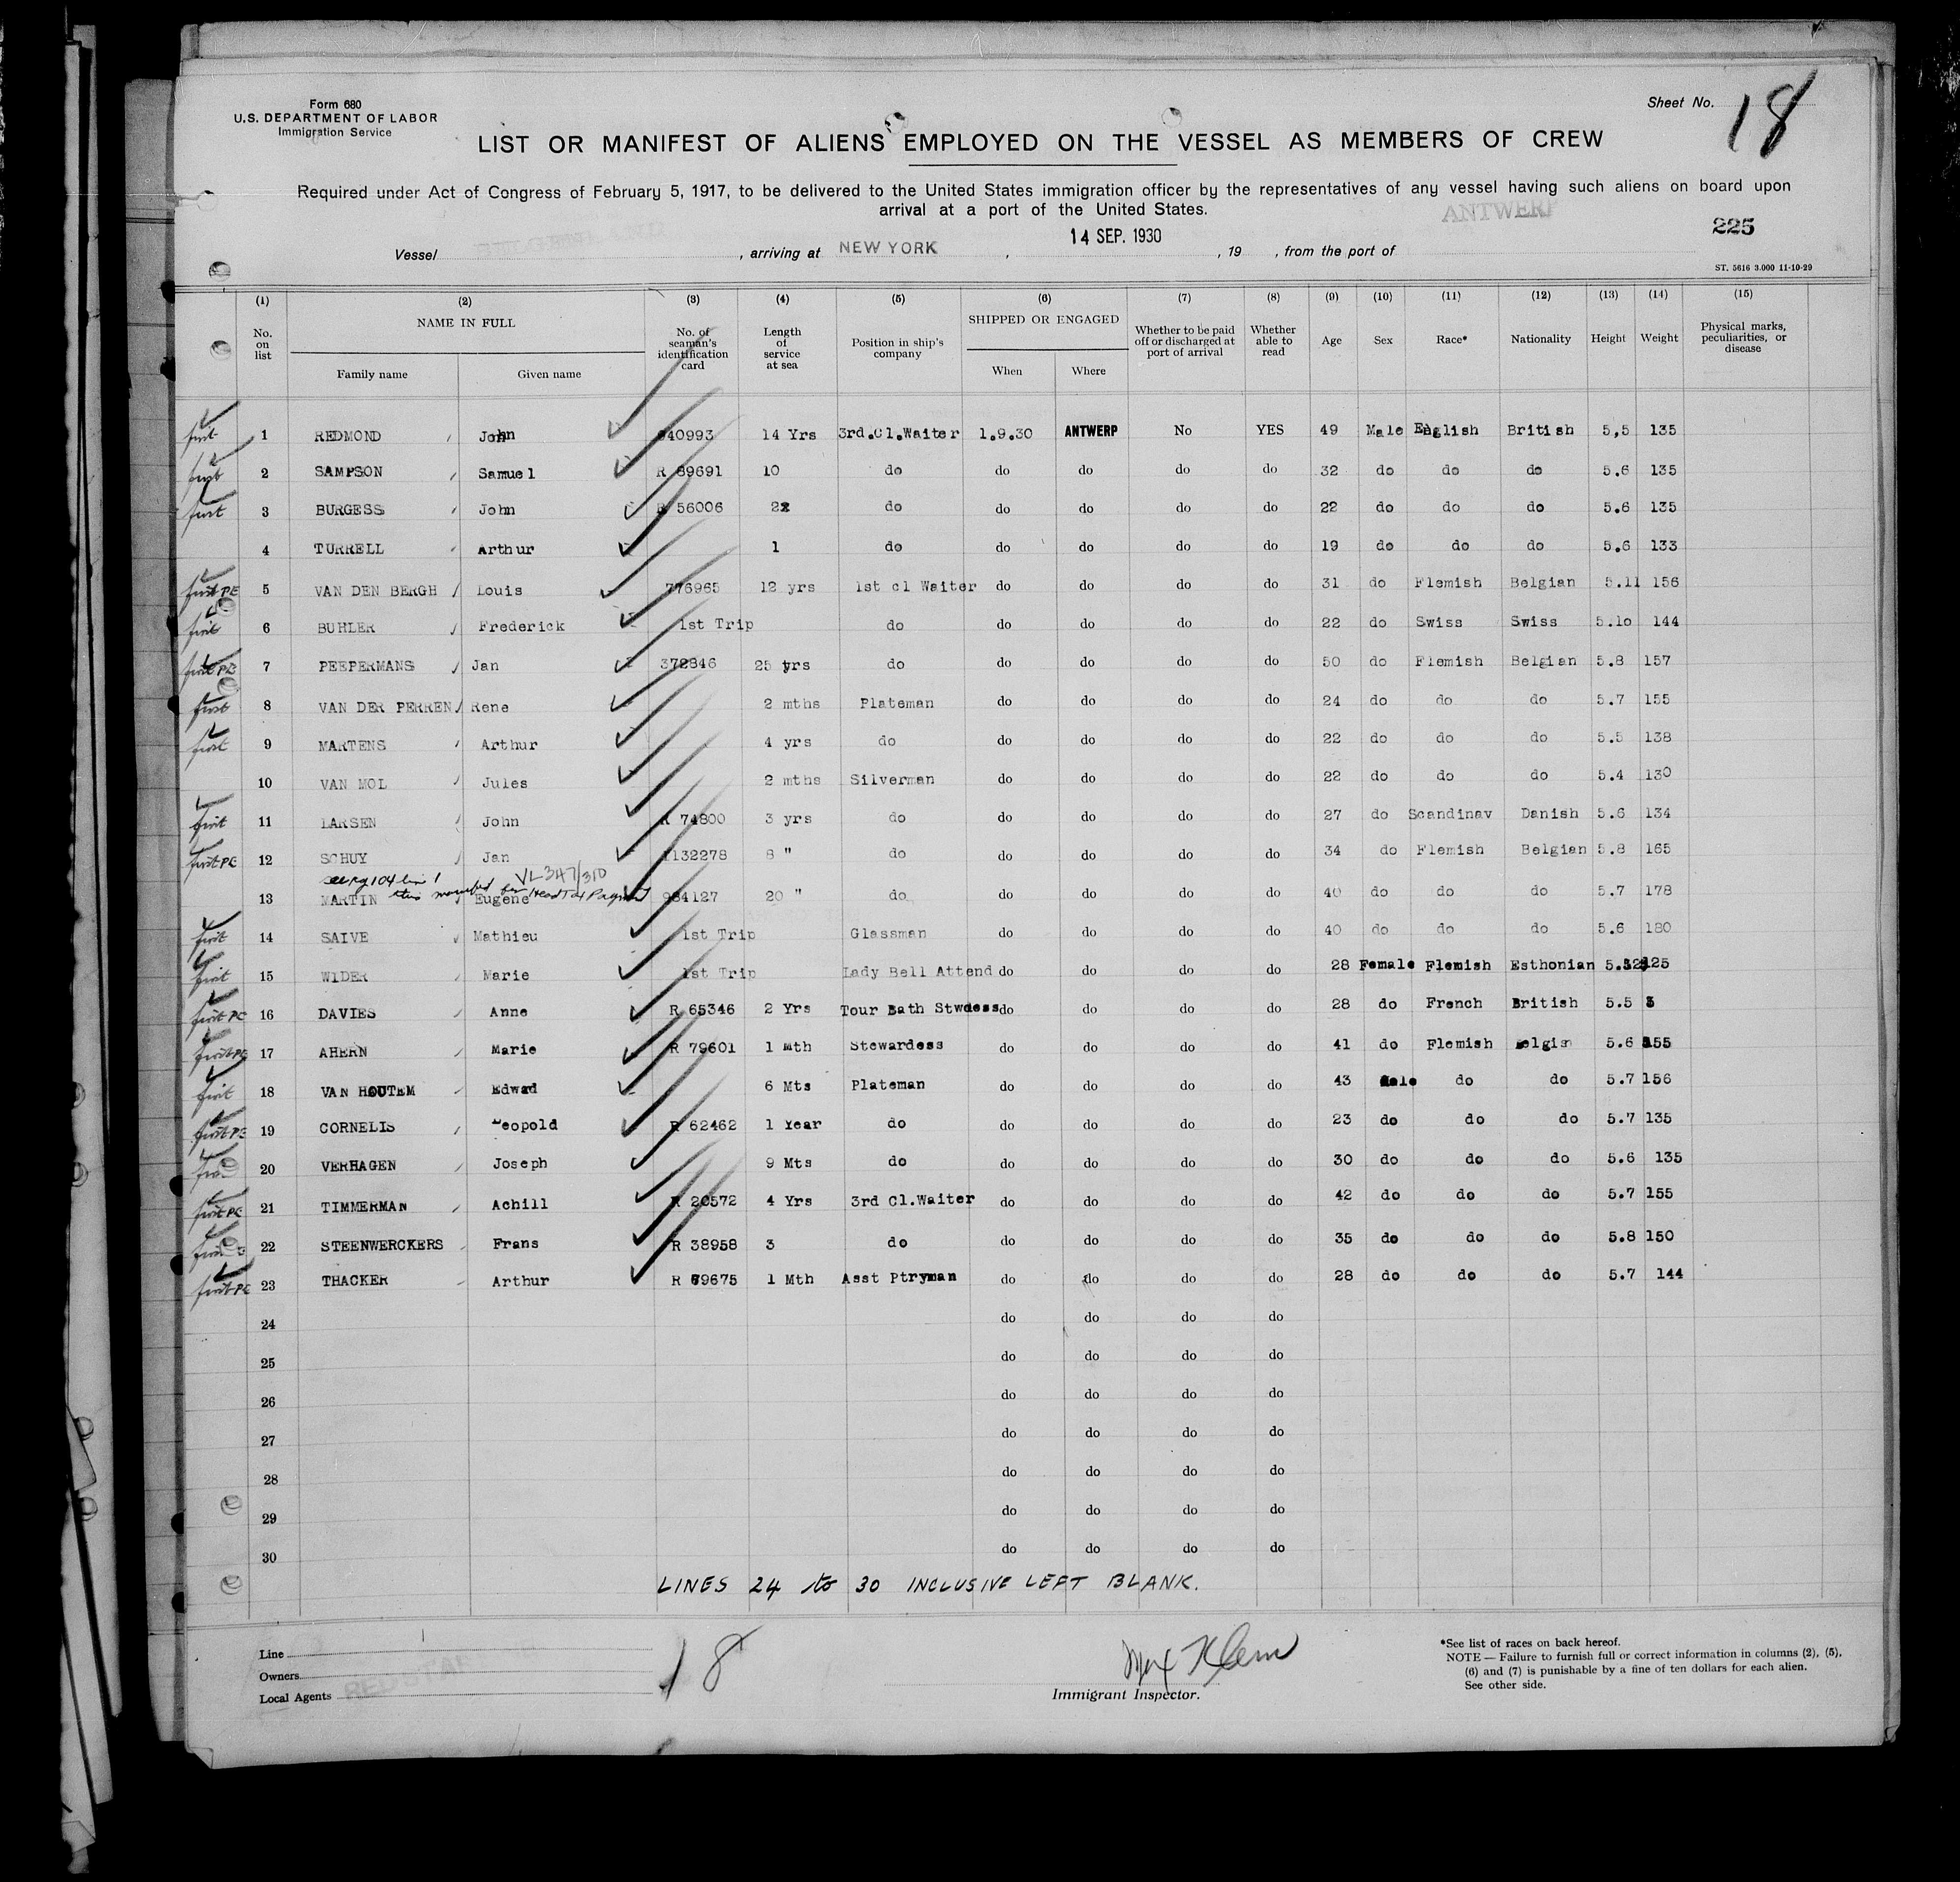 Form 680
U.S. DEPARTMENT OF LABOR
Immigration Service
Sheet No. 18
LIST OR MANIFEST OF ALIENS EMPLOYED ON THE VESSEL AS MEMBERS OF CREW
Required under Act of Congress of February 5, 1917, to be delivered to the United States immigration officer by the representatives of any vessel having such aliens on board upon
arrival at a port of the United States.
ANTWERP
225
Vessel , arriving at NEW YORK , 14 SEP. 1930 , 19 , from the port of
ST. 5616 3.000 11-10-29
(1) (2) (3) (4) (5) (6) (7) (8) (9) (10) (11) (12) (13) (14) (15)
No. on list NAME IN FULL Family name Given name No. of seaman's identification card Length of service at sea Position in ship's company SHIPPED OR ENGAGED When Where Whether to be paid off or discharged at port of arrival Whether able to read Age Sex Race* Nationality Height Weight Physical marks, peculiarities, or disease
first 1 REDMOND John 940993 14 Yrs 3rd.Cl.Waiter 1.9.30 ANTWERP No YES 49 Male English British 5,5 135
first 2 SAMPSON Samuel R 89691 10 do do do do do 32 do do do 5.6 135
first 3 BURGESS John R 56006 2 do do do do do 22 do do do 5.6 135
4 TURRELL Arthur 1 do do do do do 19 do do do 5.6 133
first PE 5 VAN DEN BERGH Louis 776965 12 yrs 1st cl Waiter do do do do 31 do Flemish Belgian 5.11 156
first 6 BUHLER Frederick 1st Trip do do do do do 22 do Swiss Swiss 5.10 144
first PE 7 PEEPERMANS Jan 372846 25 yrs do do do do do 50 do Flemish Belgian 5.8 157
first 8 VAN DER PERREN Rene 2 mths Plateman do do do do 24 do do do 5.7 155
first 9 MARTENS Arthur 4 yrs do do do do do 22 do do do 5.5 138
10 VAN MOL Jules 2 mths Silverman do do do do 22 do do do 5.4 130
first 11 LARSEN John R 74800 3 yrs do do do do do 27 do Scandinav Danish 5.6 134
first PE 12 SCHUY Jan 1132278 8 " do do do do do 34 do Flemish Belgian 5.8 165
VL 347/310
Head Tax
13 MARTIN Eugene 984127 20 " do do do do do 40 do do do 5.7 178
first 14 SAIVE Mathieu 1st Trip Glassman do do do do 40 do do do 5.6 180
first 15 WIDER Marie 1st Trip Lady Bell Attend do do do do 28 Female Flemish Esthonian 125
first PE 16 DAVIES Anne R 65346 2 Yrs Tour Bath Stwdess do do do do 28 do French British 5.5
first PE 17 AHERN Marie R 79601 1 Mth Stewardess do do do do 41 do Flemish 5.6 155
first 18 VAN HOUTEM Edwad 6 Mts Plateman do do do do 43 Male do do 5.7 156
first PE 19 CORNELIS Leopold R 62462 1 Year do do do do do 23 do do do 5.7 135
20 VERHAGEN Joseph 9 Mts do do do do do 30 do do do 5.6 135
first PE 21 TIMMERMAN Achill R 20572 4 Yrs 3rd Cl.Waiter do do do do 42 do do do 5.7 155
22 STEENWERCKERS Frans R 38958 3 do do do do do 35 do do do 5.8 150
first PE 23 THACKER Arthur R 69675 1 Mth Asst Ptryman do do do do 28 do do do 5.7 144
24 do do do do
25 do do do do
26 do do do do
27 do do do do
28 do do do do
29 do do do do
30 do do do do
LINES 24 to 30 INCLUSIVE LEFT BLANK.
Line
Owners
Local Agents
RED STAR
18
Max Klein
Immigrant Inspector.
*See list of races on back hereof.
NOTE — Failure to furnish full or correct information in columns (2), (5),
(6) and (7) is punishable by a fine of ten dollars for each alien.
See other side.